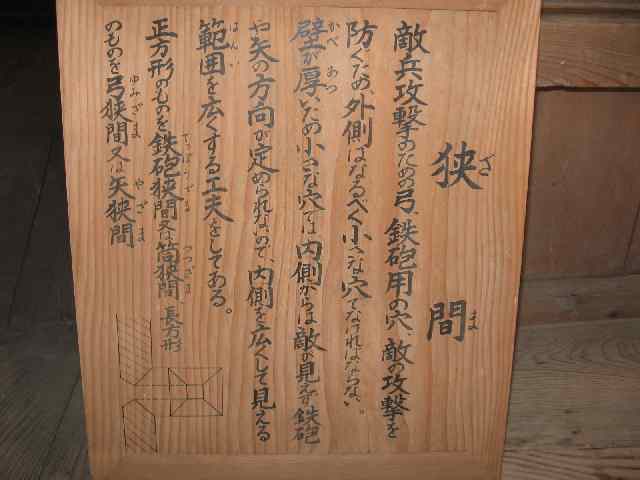 狭間
敵兵攻撃のための弓、鉄砲用の穴、敵の攻撃を
防ぐため、外側はなるべく小さな穴でなければならない。
壁が厚いため小さな穴では内側からは敵が見えず鉄砲
や矢の方向が定められないので、内側を広くして見える
範囲を広くする工夫をしてある。
正方形のものを鉄砲狭間又は筒狭間、長方形
のものを弓狭間又は矢狭間